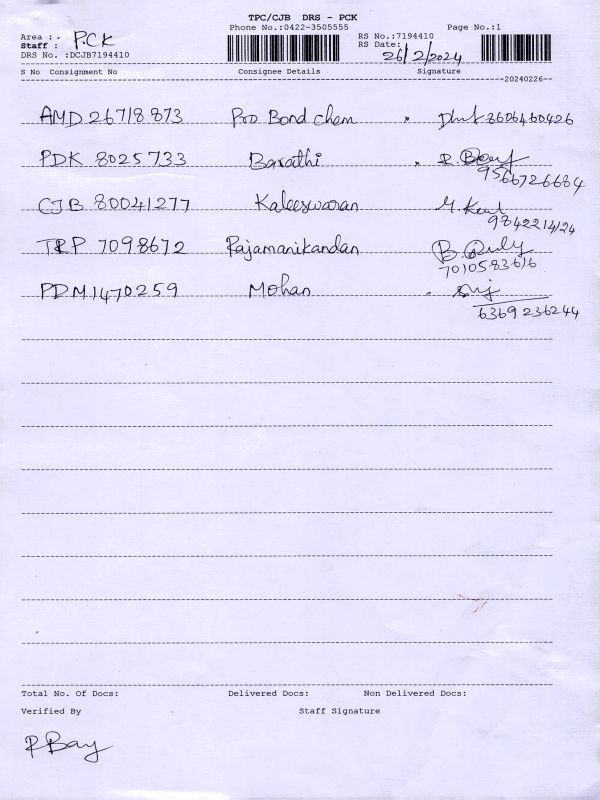 TPC/CJB DRS - PCK
Phone No.:0422-3505555 Page No.:1
Area : : P.C.K RS No.:7194410
Staff : RS Date: 26/2/2024
DRS No. :DCJB7194410
S No Consignment No Consignee Details Signature
20240226--
AMD 26718873 Pro Bond chem 8606460426
PDK 8025733 Barathi
9566726684
CJB 80041277 Kaleeswaran
9842214124
TRP 7098672 Rajamanikandan
7010583616
PDM 1470259 Mohan
6369236244
Total No. Of Docs: Delivered Docs: Non Delivered Docs:
Verified By Staff Signature